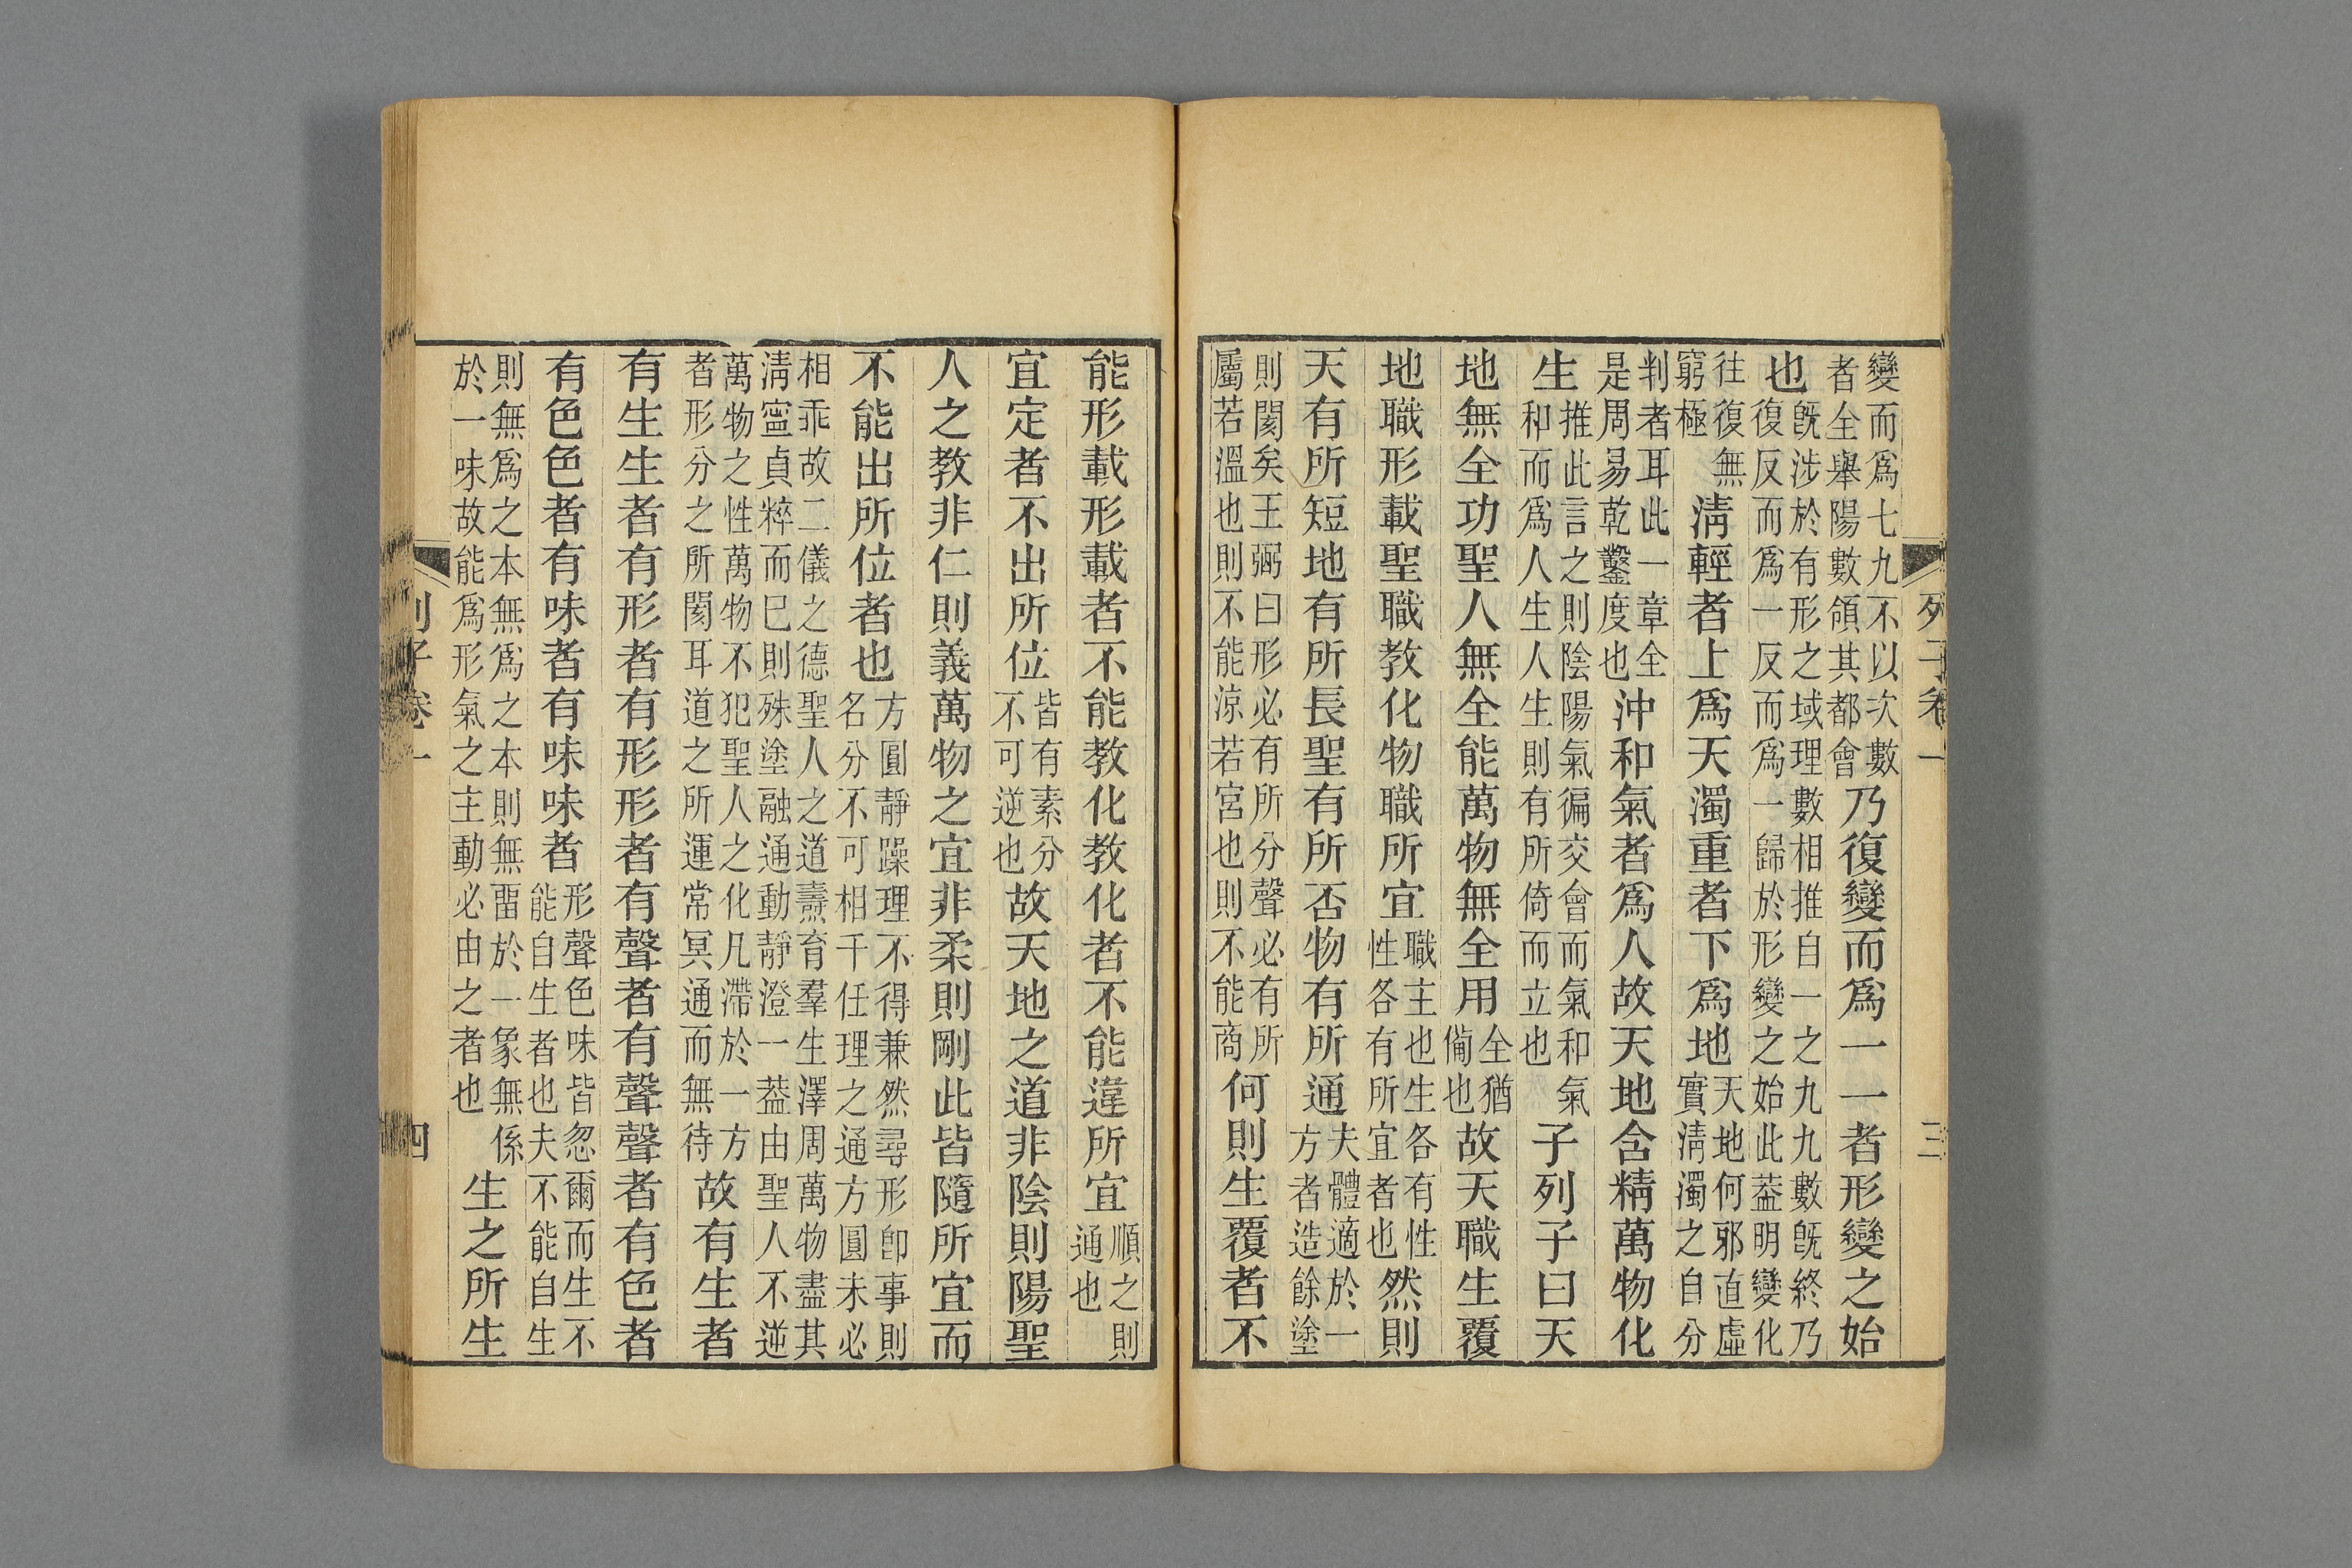 列子卷一 三
變而爲七九不以次數
者全舉陽數領其都會
乃復變而爲一一者形變之始
也
旣涉於有形之域理數相推自一之九九數旣終乃
復反而爲一反而爲一歸於形變之始此葢明變化
往復無
窮極
淸輕者上爲天濁重者下爲地
天地何邪直虛
實淸濁之自分
判者耳此一章全
是周易乾鑿度也
沖和氣者爲人故天地含精萬物化
生
推此言之則陰陽氣徧交會而氣和氣
和而爲人生人生則有所倚而立也
子列子曰天
地無全功聖人無全能萬物無全用
全猶
僃也
故天職生覆
地職形載聖職教化物職所宜
職主也生各有性
性各有所宜者也
然則
天有所短地有所長聖有所否物有所通
夫體適於一
方者造餘塗
則閡矣王弼曰形必有所分聲必有所
屬若溫也則不能涼若宮也則不能商
何則生覆者不
能形載形載者不能教化教化者不能違所宜
順之則
通也
宜定者不出所位
皆有素分
不可逆也
故天地之道非陰則陽聖
人之教非仁則義萬物之宜非柔則剛此皆隨所宜而
不能出所位者也
方圓靜躁理不得兼然尋形卽事則
名分不可相干任理之通方圓未必
相乖故二儀之德聖人之道燾育羣生澤周萬物盡其
淸寍貞粹而已則殊塗融通動靜澄一葢由聖人不逆
萬物之性萬物不犯聖人之化凡滯於一方
者形分之所閡耳道之所運常冥通而無待
故有生者
有生生者有形者有形形者有聲者有聲聲者有色者
有色色者有味者有味味者
形聲色味皆忽爾而生不
能自生者也夫不能自生
則無爲之本無爲之本則無畱於一象無係
於一味故能爲形氣之主動必由之者也
生之所生
列子卷一 四